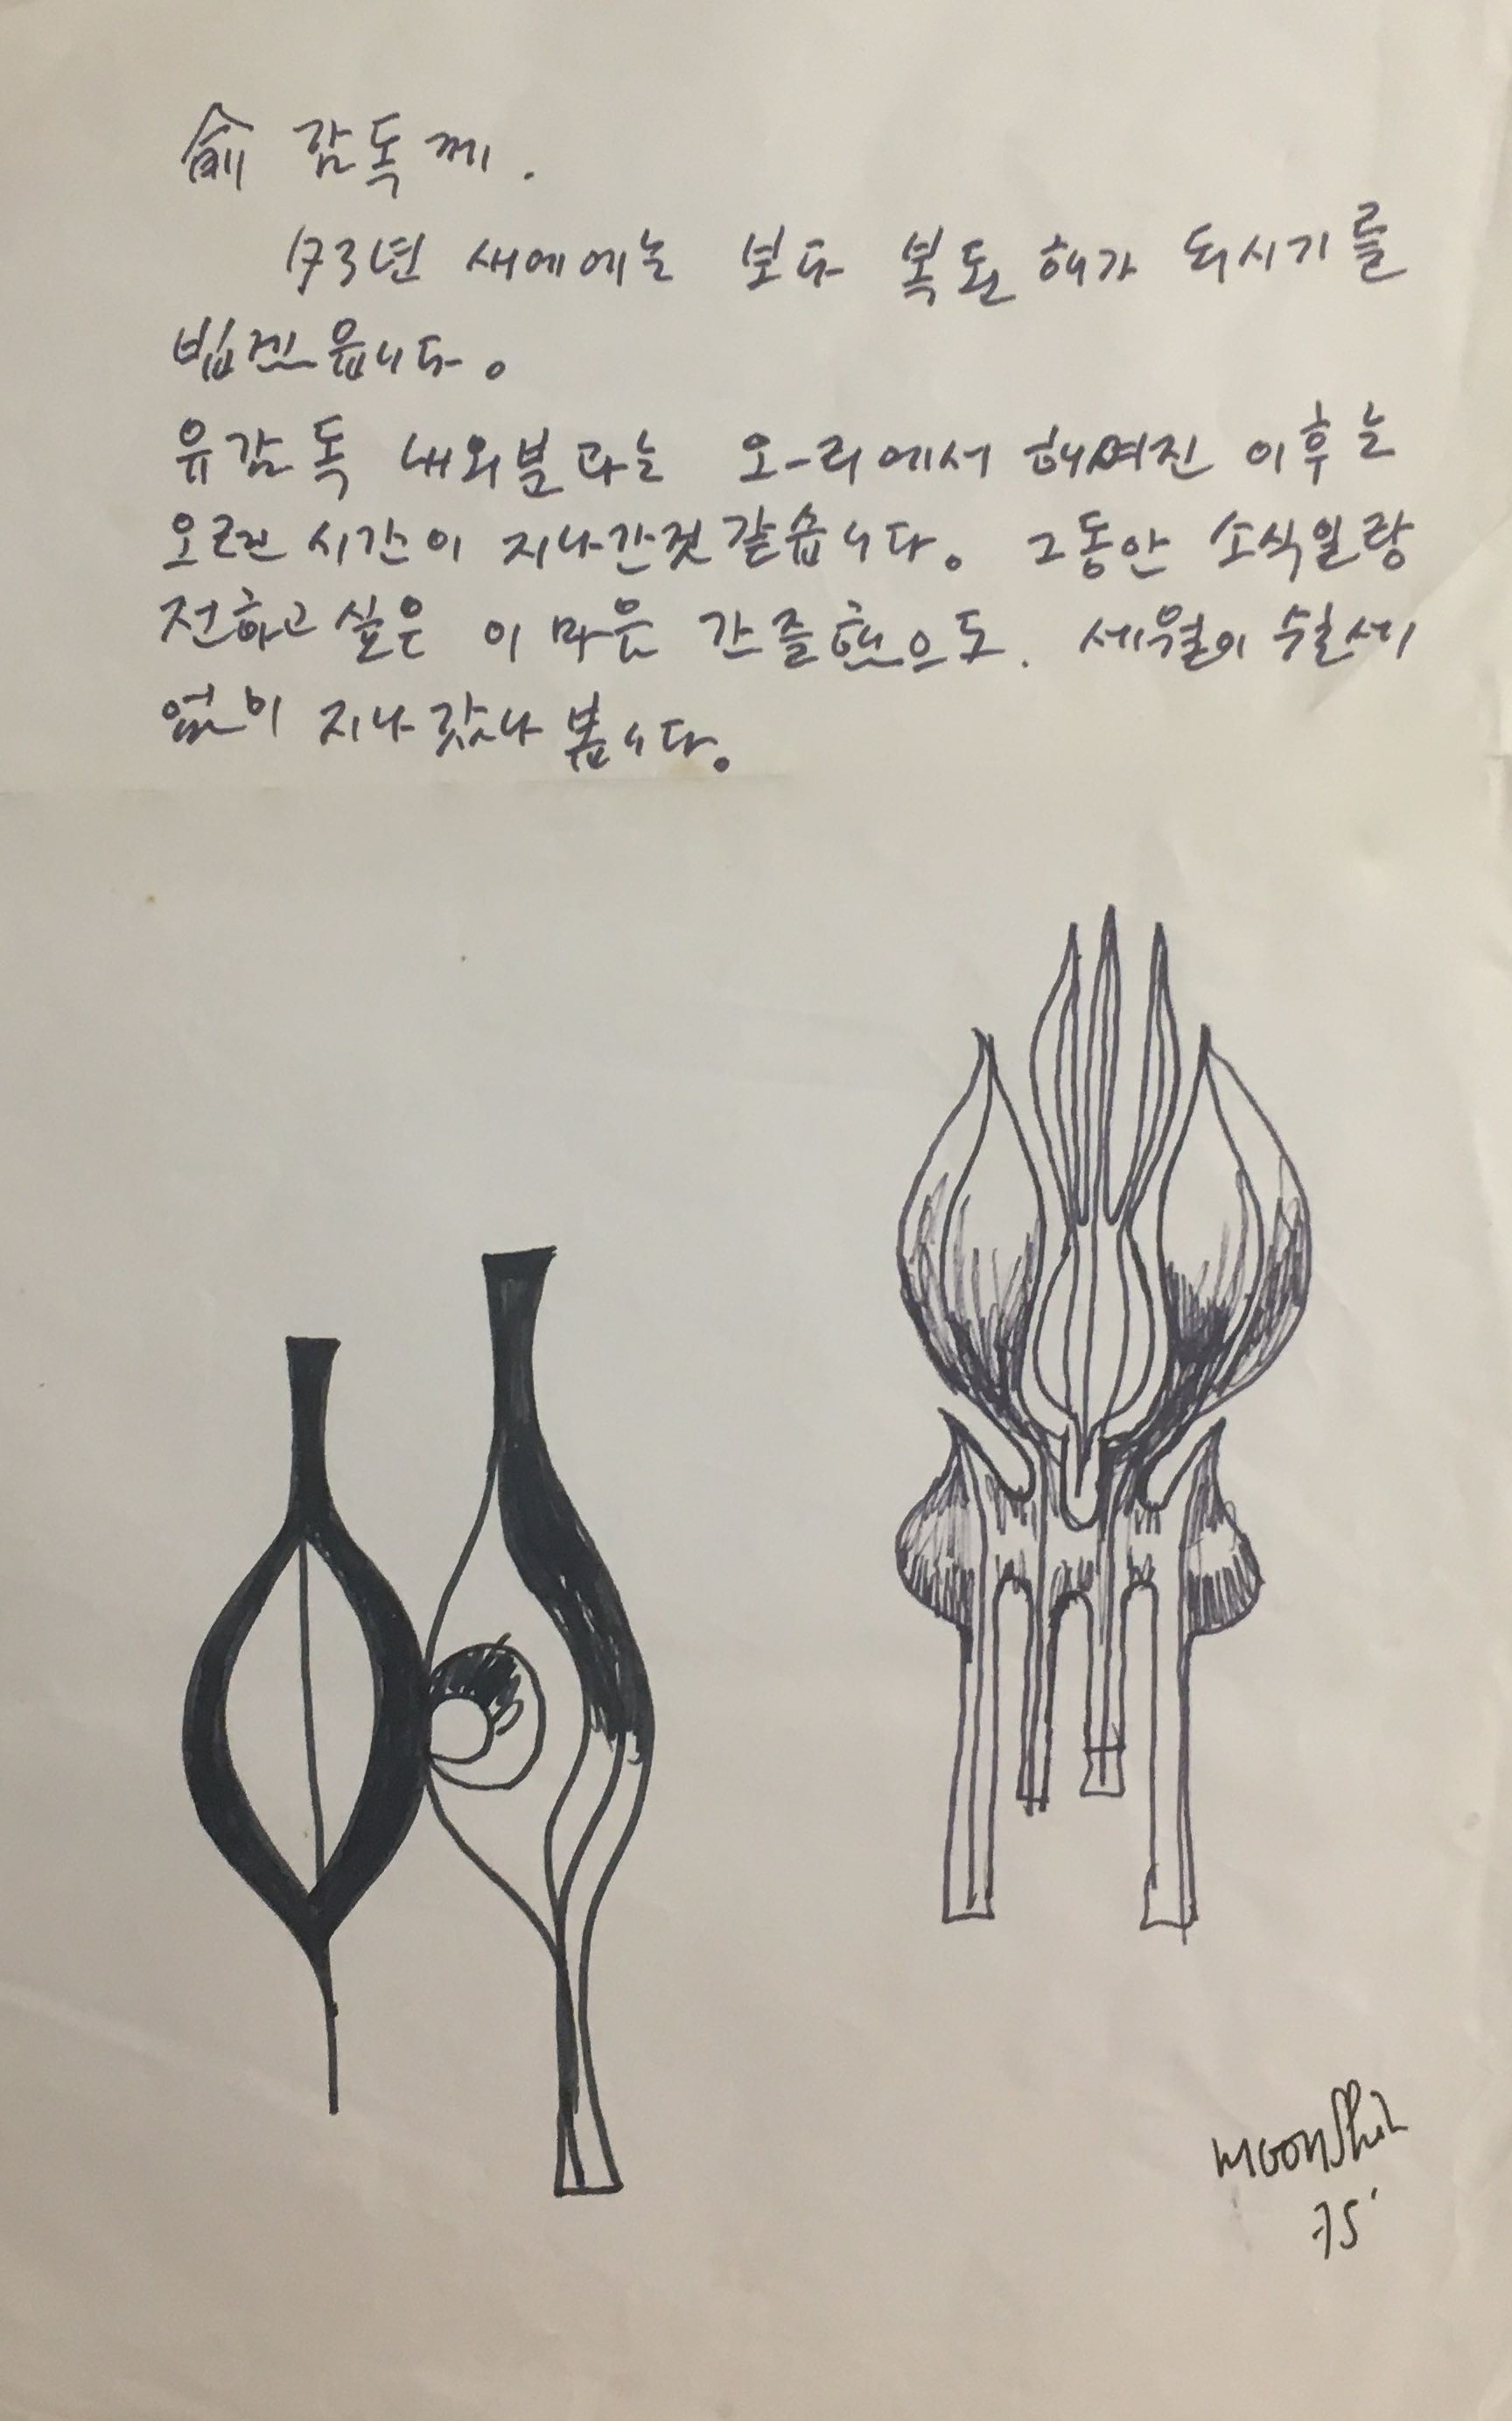 兪 감독께.
173년 새에에는 보다 복된 해가 되시기를
빕겐읍니다。
유감독 내외분과는 오-리에서 해여진 이후는
오랜 시간이 지나간것 같습니다。 그동안 소식일랑
전하고 싶은 이 마음 간즐했으도. 세월이 수월세
없이 지나갔나 봅니다。
moonShin
75'